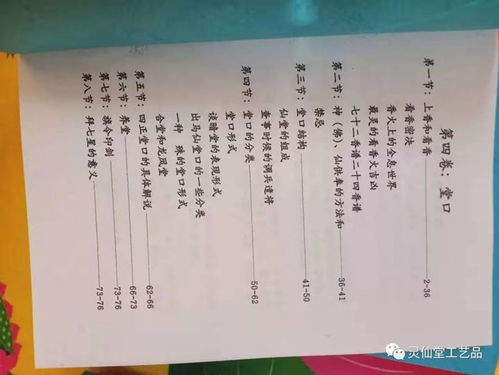 第四卷：堂口
第一节：上香和看香————2-36
看香密决
香火上的全息世界
最灵的看香火吉凶
七十二香谱二十四香谱
第二节：神（佛）、仙供奉的方法和————36-41
禁忌
第三节：堂口结构————41-50
仙堂的组成
查事时候的调兵遣将
第四节：堂口的分类————50-62
堂口形式
诙暗堂的表现形式
出马仙堂口的一些分类
一种 殊的堂口形式
合堂和龙凤堂
第五节：四正堂口的具体解说————62-66
第六节：养堂————66-73
第七节：旗令印剑————73-76
第八节：拜七星的意义————73-76
灵仙堂工艺品